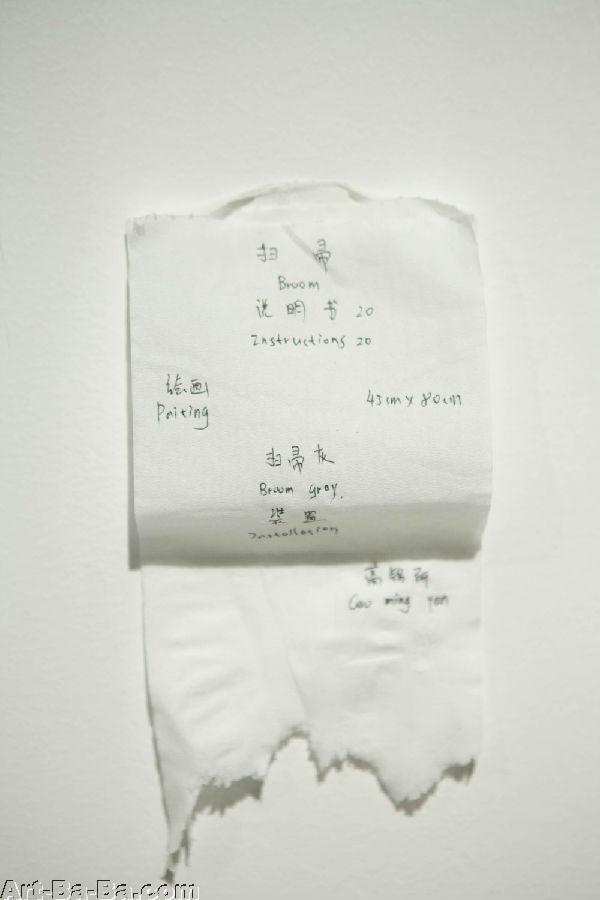 扫 帚
Broom
说 明 书 20
Instructions 20
绘画
Paiting
45cm x 80cm
扫帚灰
Broom gray.
装 置
Installation
高 铭 研
Gao ming yan
Art-Ba-Ba.com